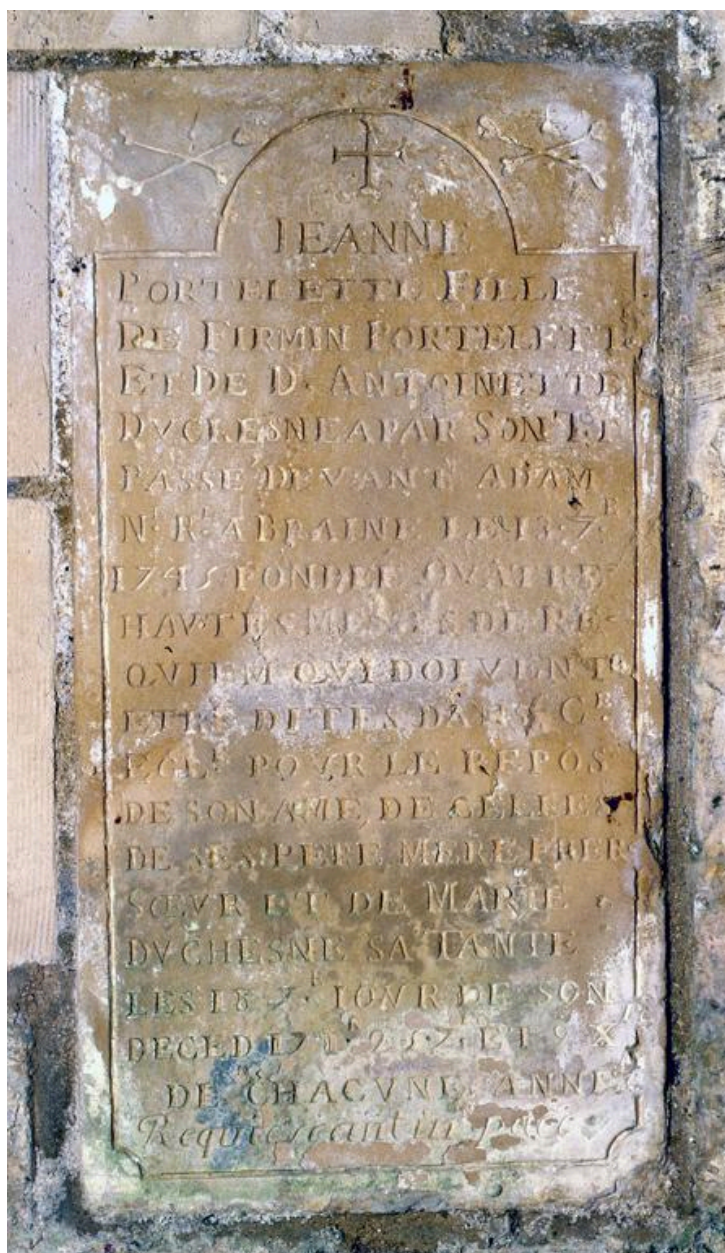 IEANNE
PORTELETTE FILLE
DE FIRMIN PORTELETT
ET DE D. ANTOINETTE
DVCHESNE A PAR SON
PASSÉ DEVANT ADAM
N. R. A BRAINE LE 13. 7.
1745 FONDEE QVATRE
HAVTES MESSES DE RE
QVIEM QVI DOIVENT
ETRE DITES DANS
POVR LE REPOS
DE SON AME DE CELLES
DE SES PERE MERE FRER
SŒVR ET DE MARIE
DVCHESNE SA TANTE
LES 18 IOVR DE SON
DECED ET
DE CHACVNE ANNE
Requiescant in pace